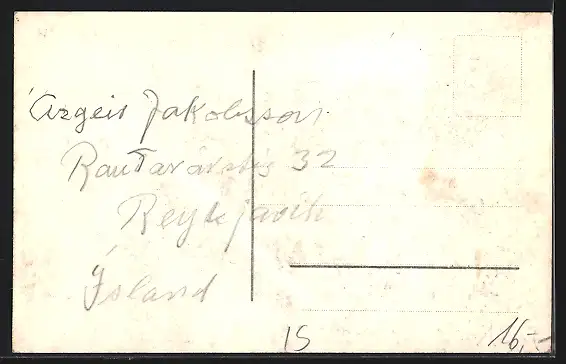 Ásgeir Jakobsson
Rauðarárstíg 32
Reykjavik
Ísland
IS
16,-